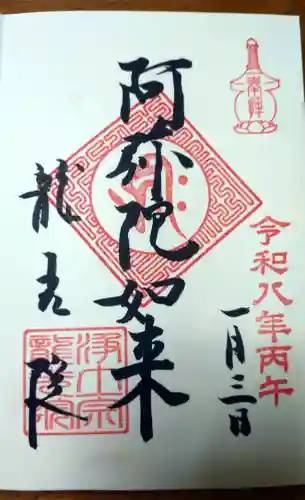 奉拝
令和八年丙午
一月三日
阿弥陀如来
龍光院
浄土宗
龍光院